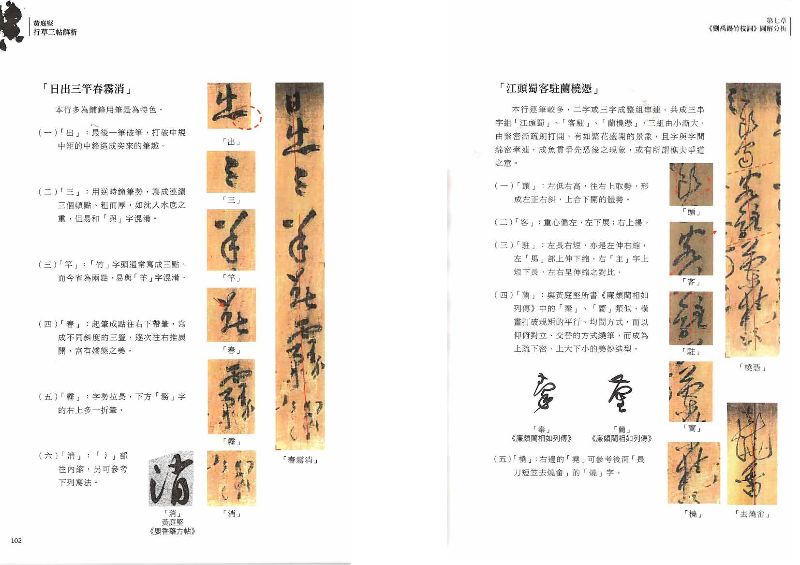 黃庭堅
行草三帖解析
「日出三竿春霧消」
本行多為鋪鋒用筆是為特色。
(一)「出」：最後一筆破筆，打破中規
中矩的中鋒造成突來的筆趣。
「出」
(二)「三」：用逆時鐘筆勢，寫成連續
三個頓點、粗而厚，如沈入水底之
重，但易和「與」字混淆。
「三」
(三)「竿」：「竹」字頭通常寫成三點，
而今省為兩點，易與「午」字混淆。
「竿」
(四)「春」：起筆成點往右下帶筆，寫
成不同斜度的三疊，逐次往右推展
開，富有嬌態之美。
「春」
(五)「霧」：字勢拉長，下方「務」字
的右上多一折筆。
「霧」
(六)「消」：「氵」部
往內縮，另可參考
下列寫法。
「消」
黃庭堅
《嬰香藥方帖》
「消」
「春霧消」
102
第七章
《劉禹錫竹枝詞》圖解分析
「江頭蜀客駐蘭橈憑」
本行連筆較多，二字或三字成整組串連，共成三串
字組「江頭蜀」、「客駐」、「蘭橈憑」，三組由小漸大、
由緊密漸疏朗打開，有如繁花盛開的景象，且字與字間
綿密牽連，成魚貫爭先恐後之現象，或有所謂樵夫爭道
之意。
(一)「頭」：左低右高，往右上取勢，形
成左正右斜，上合下開的體勢。
「頭」
(二)「客」：重心偏左，左下展；右上揚。
「客」
(三)「駐」：左長右短，亦是左伸右縮，
左「馬」部上伸下縮，右「主」字上
短下長，左右呈伸縮之對比。
「駐」
(四)「蘭」：與黃庭堅所書《廉頗藺相如
列傳》中的「秦」、「藺」類似，橫
畫打破規矩的平行、均間方式，而以
仰俯對立、交替的方式繞筆，而成為
上疏下密、上大下小的美妙造型。
「秦」
《廉頗藺相如列傳》
「藺」
《廉頗藺相如列傳》
「蘭」
(五)「橈」：右邊的「堯」可參考後面「長
刀短笠去燒畬」的「燒」字。
「橈」
「橈憑」
「去燒畬」